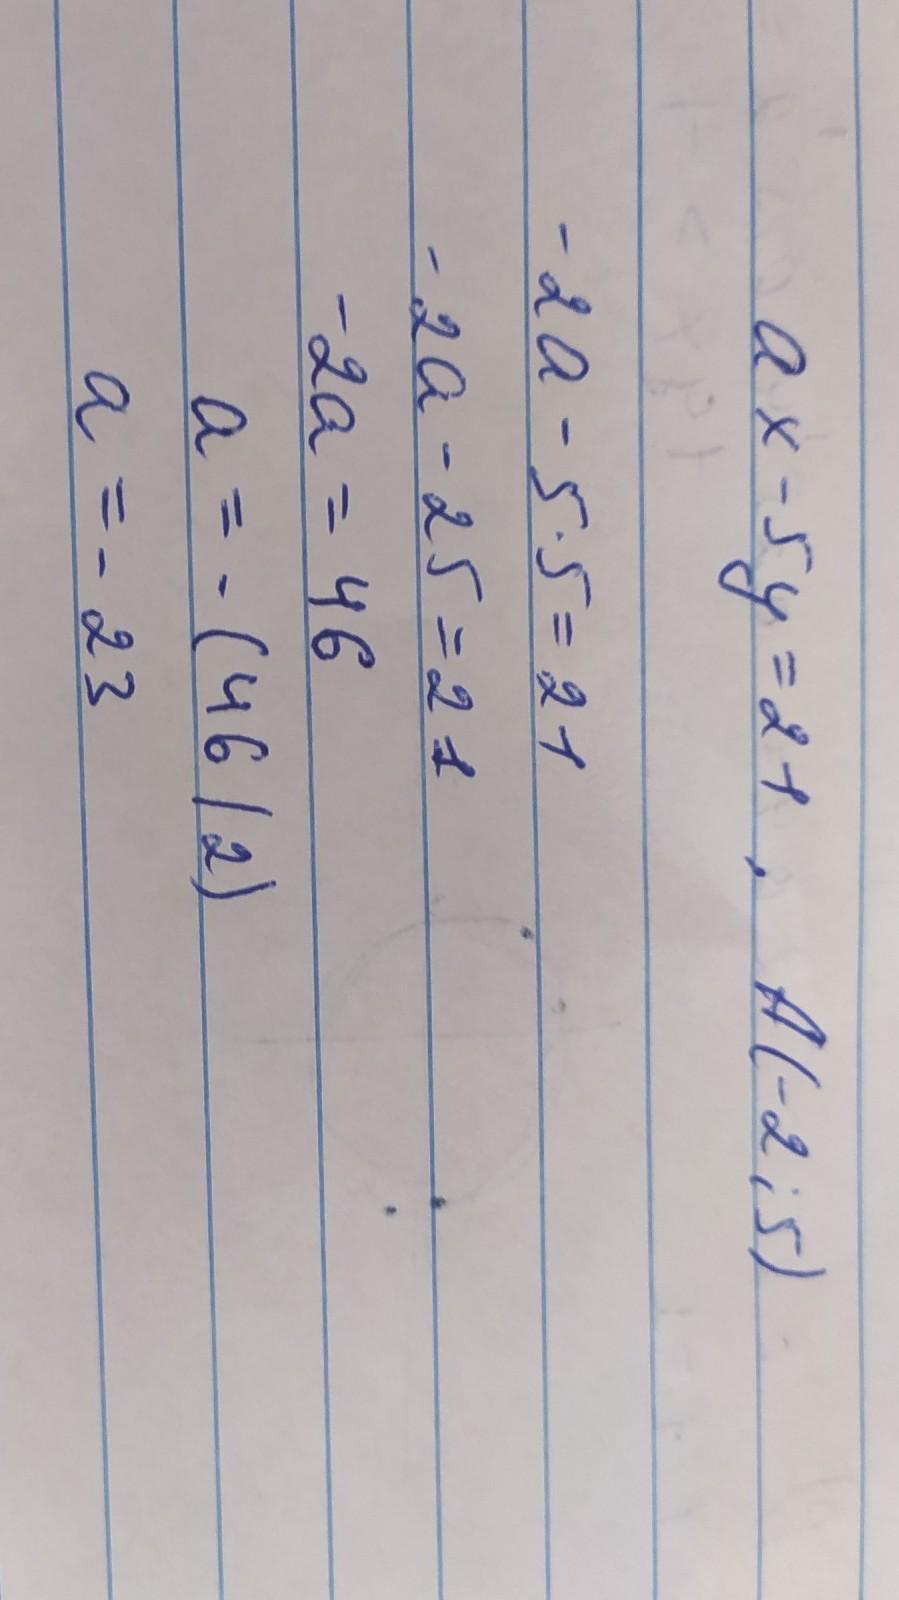 ax - 5y = 21, A(-2; 5)
-2a - 5·5 = 21
-2a - 25 = 21
-2a = 46
a = -(46/2)
a = -23